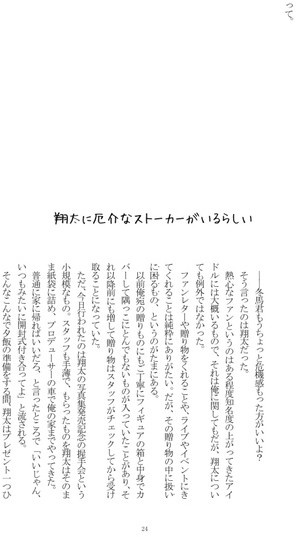 って。
翔太に厄介なストーカーがいるらしい
――冬馬君もうちょっと危機感もった方がいいよ？
そう言ったのは翔太だった。
熱心なファンというのはある程度知名度の上がってきたアイ
ドルには大概いるもので、それは俺に関してもだが、翔太につい
ても例外ではなかった。
ファンレターや贈り物をくれることや、ライブやイベントにき
てくれることは純粋にありがたい。だが、その贈り物の中に扱い
に困るもの、というのがたまにある。
以前俺宛の贈りものにもご丁寧にフィギュアの箱と中身でカ
バーして隅っこにとんでもないものが入っていたことがあり、そ
れ以降前にも増して贈り物はスタッフがチェックしてから受け
取ることになっていた。
ただ、今日行われたのは翔太の写真集発売記念の握手会という
小規模なもの。スタッフも手薄で、もらったものを翔太はそのま
ま紙袋に詰め、プロデューサーの車で俺の家までやってきた。
普通に家に帰ればいいだろ、と言ったところで「いいじゃん、
いつもみたいに開封式付き合ってよ」と流される。
そんなこんなで夕飯の準備をする間、翔太はプレゼント一つひ
24